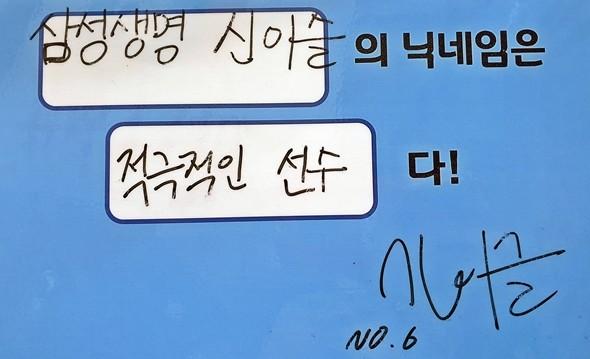 삼성생명 신이슬 의 닉네임은
적극적인 선수 다!
NO. 6